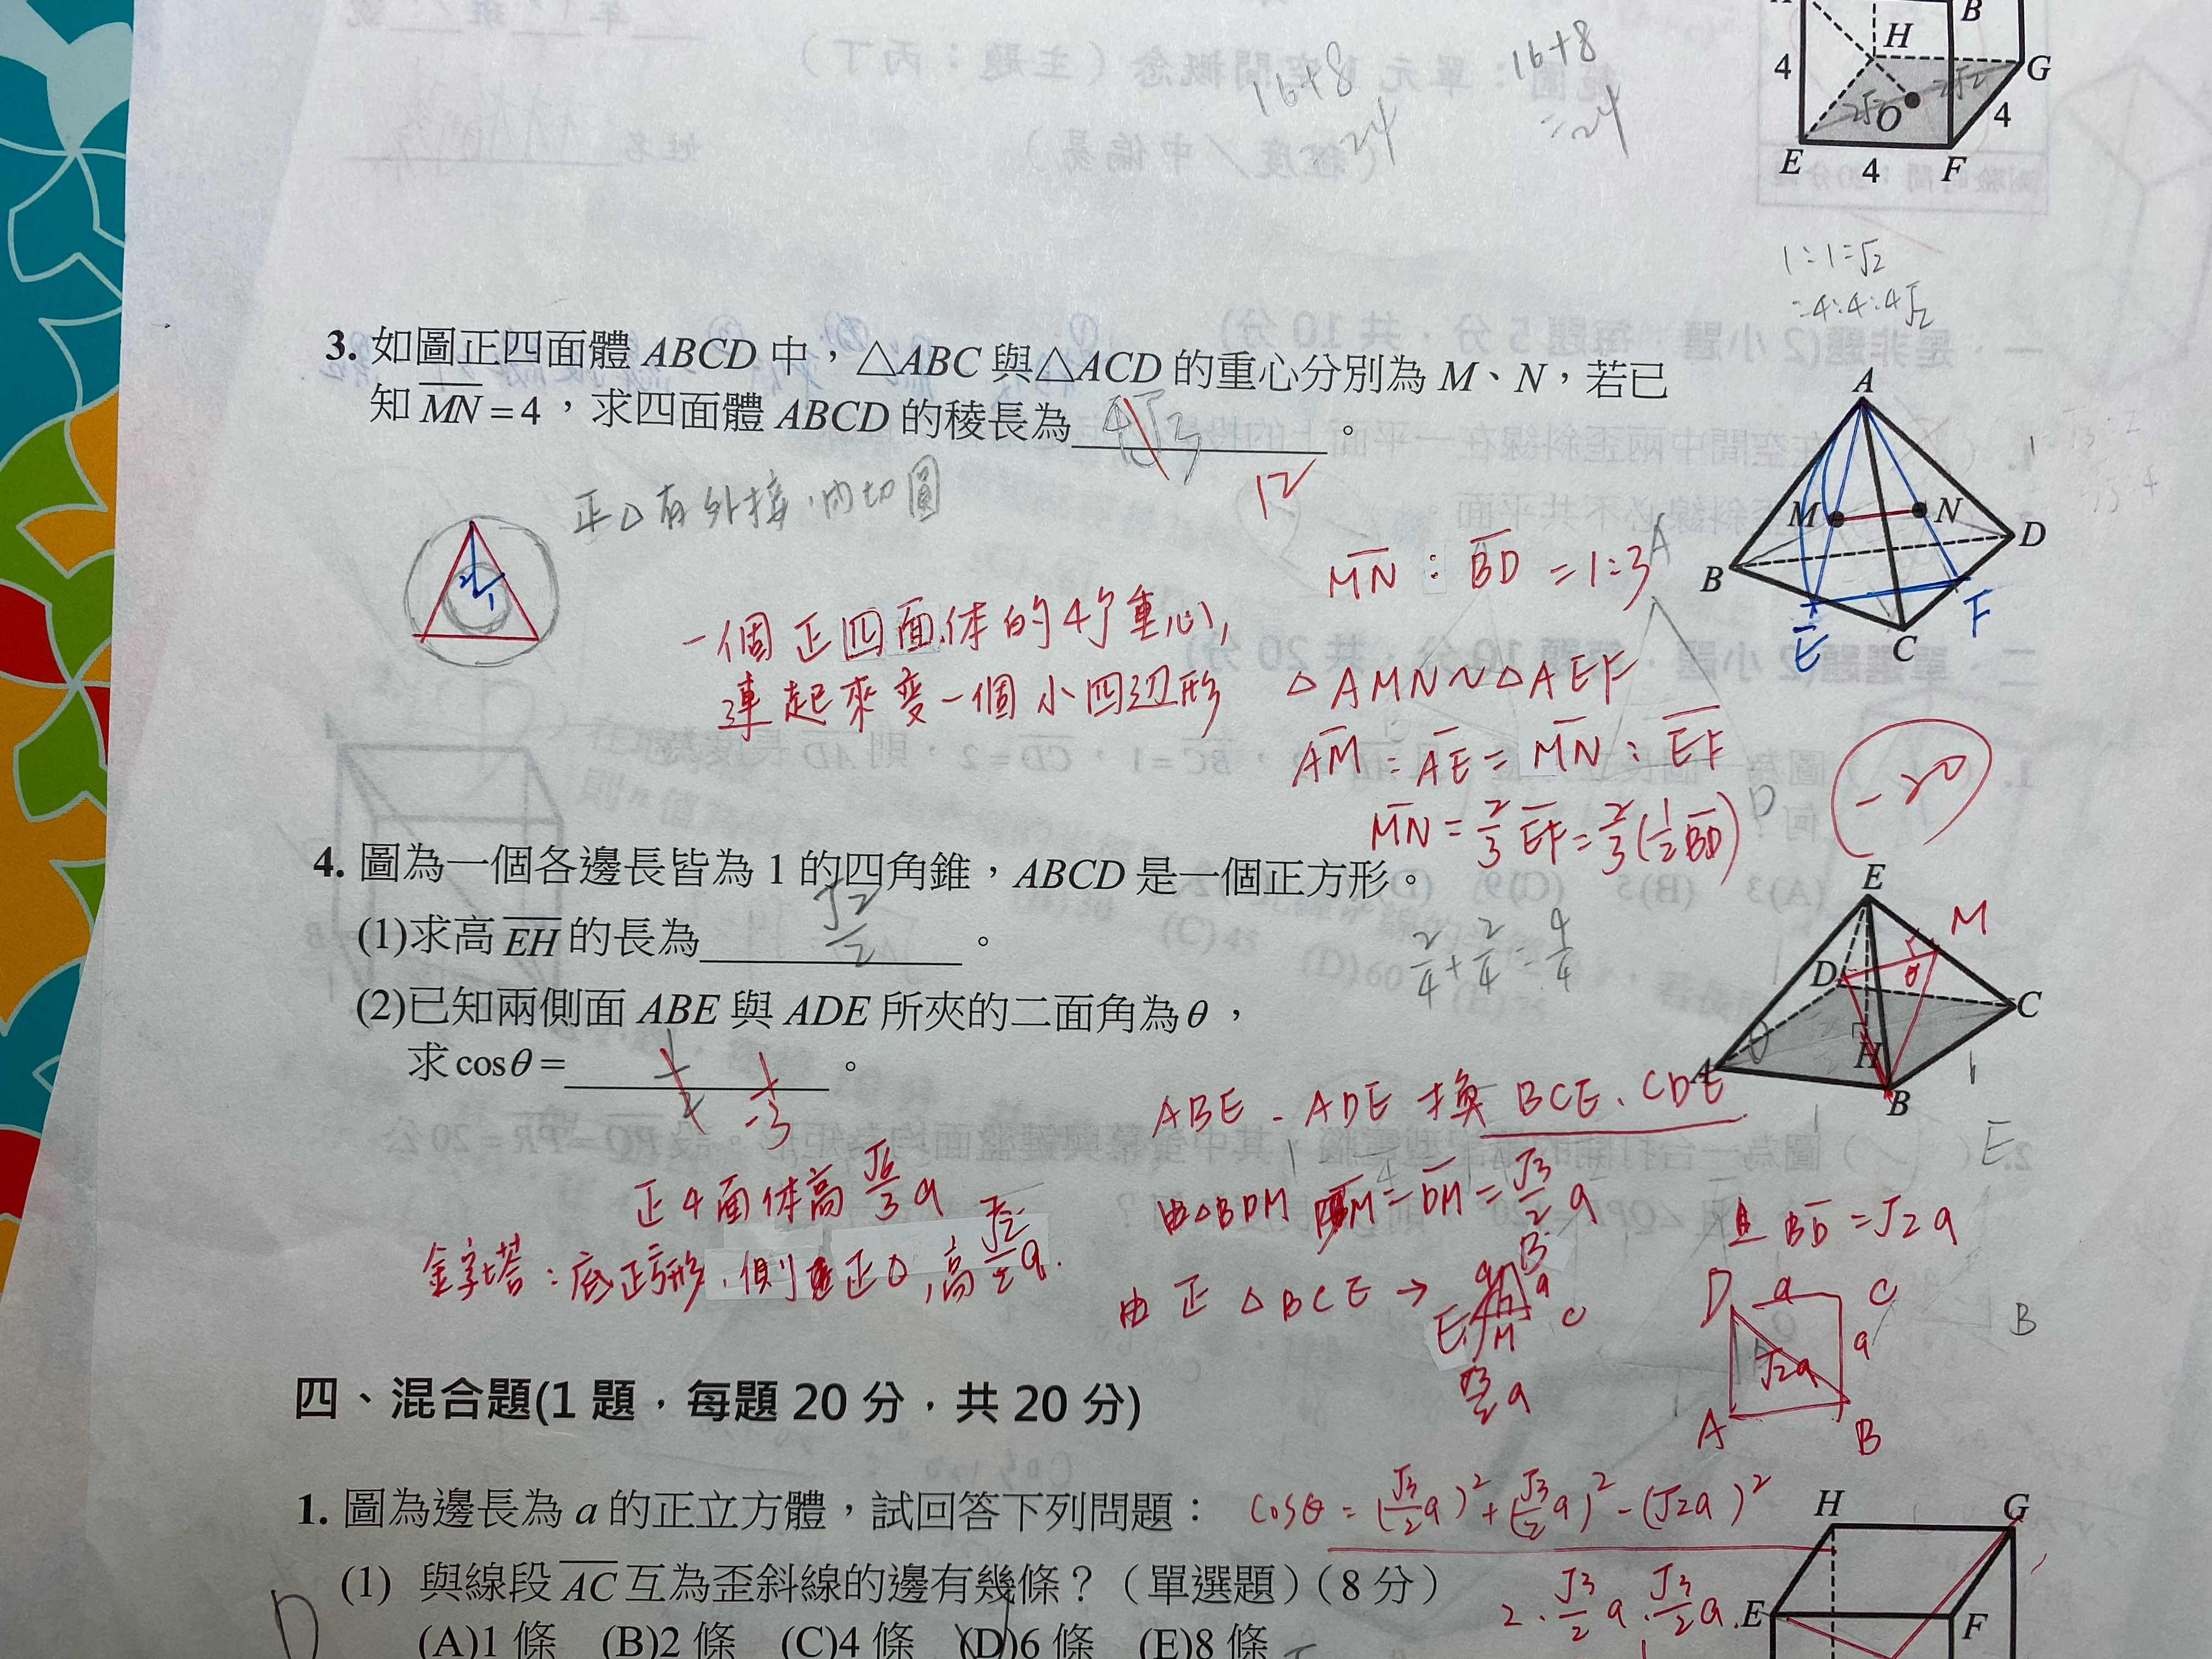 16+8
=24
16+8
24
B
H
G
4
2√2
2√2
O
4
E
4
F
1:1:√2
=4:4:4√2
3. 如圖正四面體 ABCD 中，△ABC 與△ACD 的重心分別為 M、N，若已
知 MN = 4，求四面體 ABCD 的稜長為 4√3 。
12
正△有外接、內切圓
2
1
一個正四面体的4个重心,
連起來變一個小四边形
MN : BD = 1:3
△AMN ~ △AEF
AM : AE = MN : EF
MN = 2/3 EF = 2/3 (1/2 BD)
A
M
N
D
B
E
C
F
-20
4. 圖為一個各邊長皆為 1 的四角錐，ABCD 是一個正方形。
(1)求高 EH 的長為 √2/2 。
2/4 + 2/4 = 4/4
(2)已知兩側面 ABE 與 ADE 所夾的二面角為θ，
求 cosθ = 。
1/-3
E
M
D
θ
C
A
θ
H
B
1
1
ABE - ADE 換 BCE、CDE
正4面体高 √6/3 a
金字塔：底正方形, 側正△, 高 √2/2 a.
由△BDM BM = DM = √3/2 a
且 BD = √2 a
由正△BCE →
B
a
a
E
M
C
√3/2 a
D
a
C
a
√2a
A
B
E
B
四、混合題(1 題，每題 20 分，共 20 分)
1. 圖為邊長為 a 的正立方體，試回答下列問題：
cosθ = (√3/2 a)² + (√3/2 a)² - (√2a)²
2 · √3/2 a · √3/2 a
(1) 與線段 AC 互為歪斜線的邊有幾條？（單選題）（8 分）
D
(A)1 條 (B)2 條 (C)4 條 (D)6 條 (E)8 條
H
G
E
F